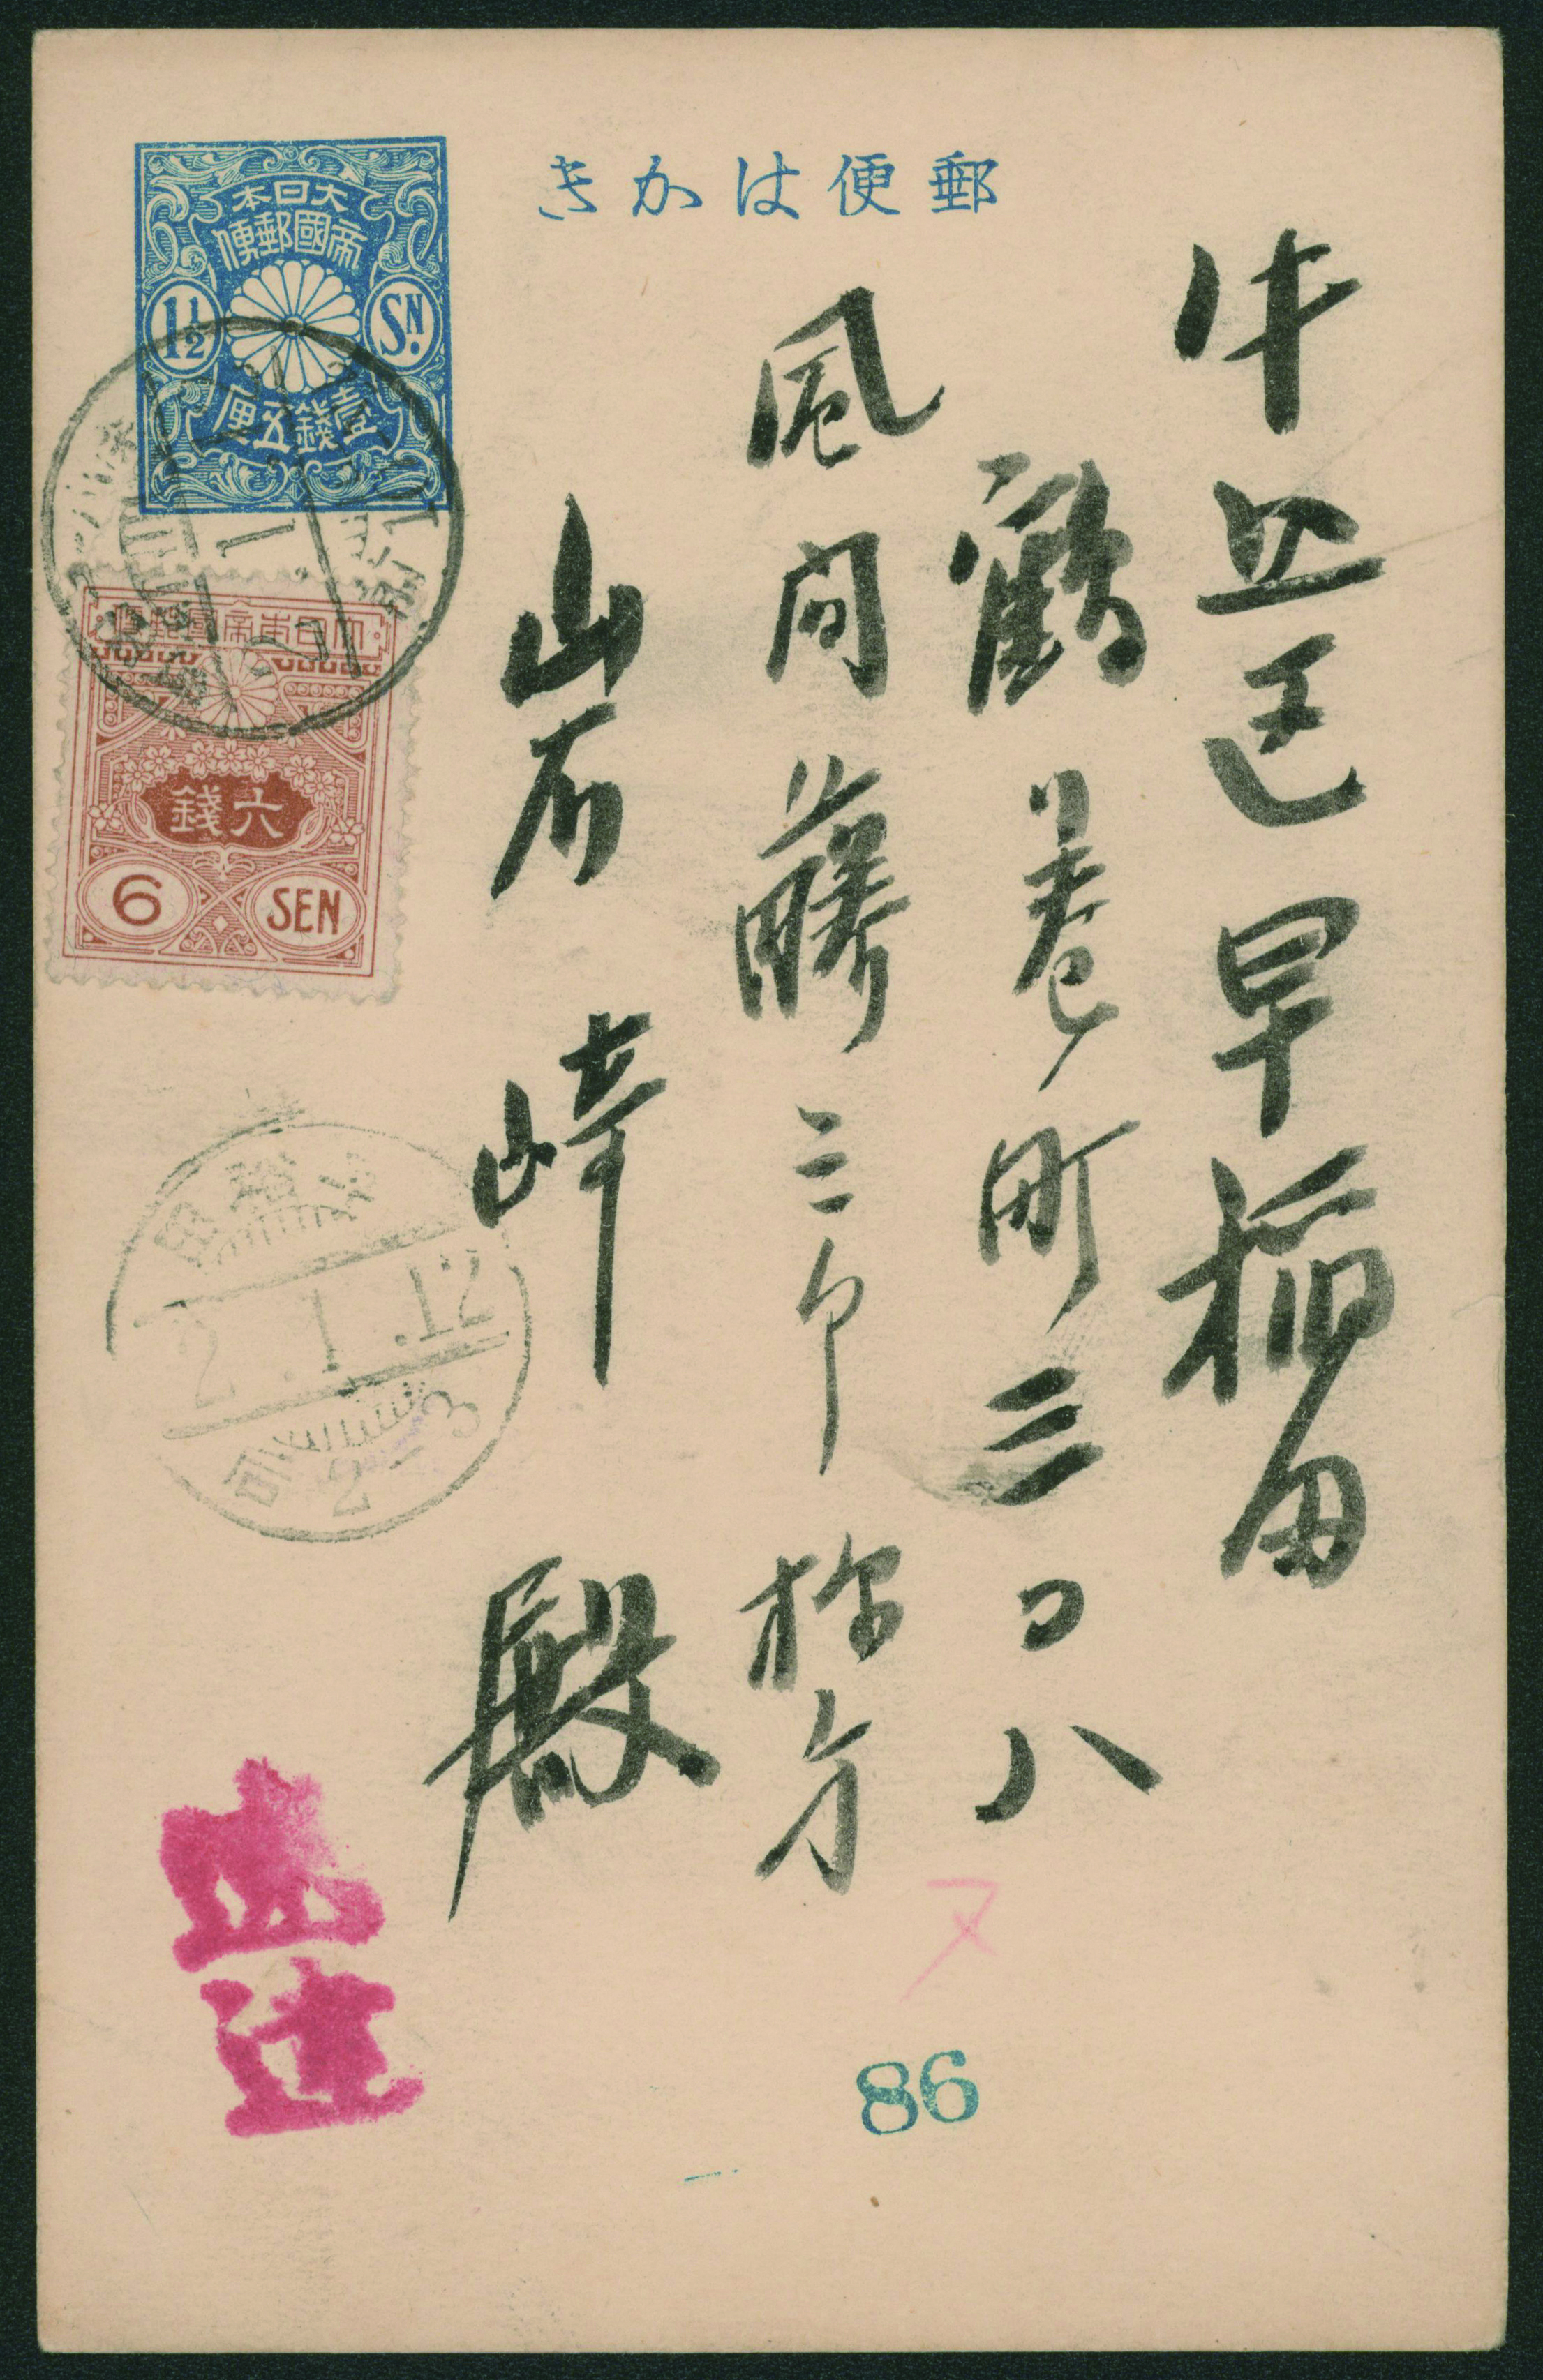 郵便はかき
大日本
帝國郵便
1½ SN.
壹錢五厘
大日本帝國郵便
六錢
6 SEN
牛込区早稲田
鶴巻町三〇八
風间藤三郎様方
岩崎殿
早稲田
2.1.12
后2-3
速達
86